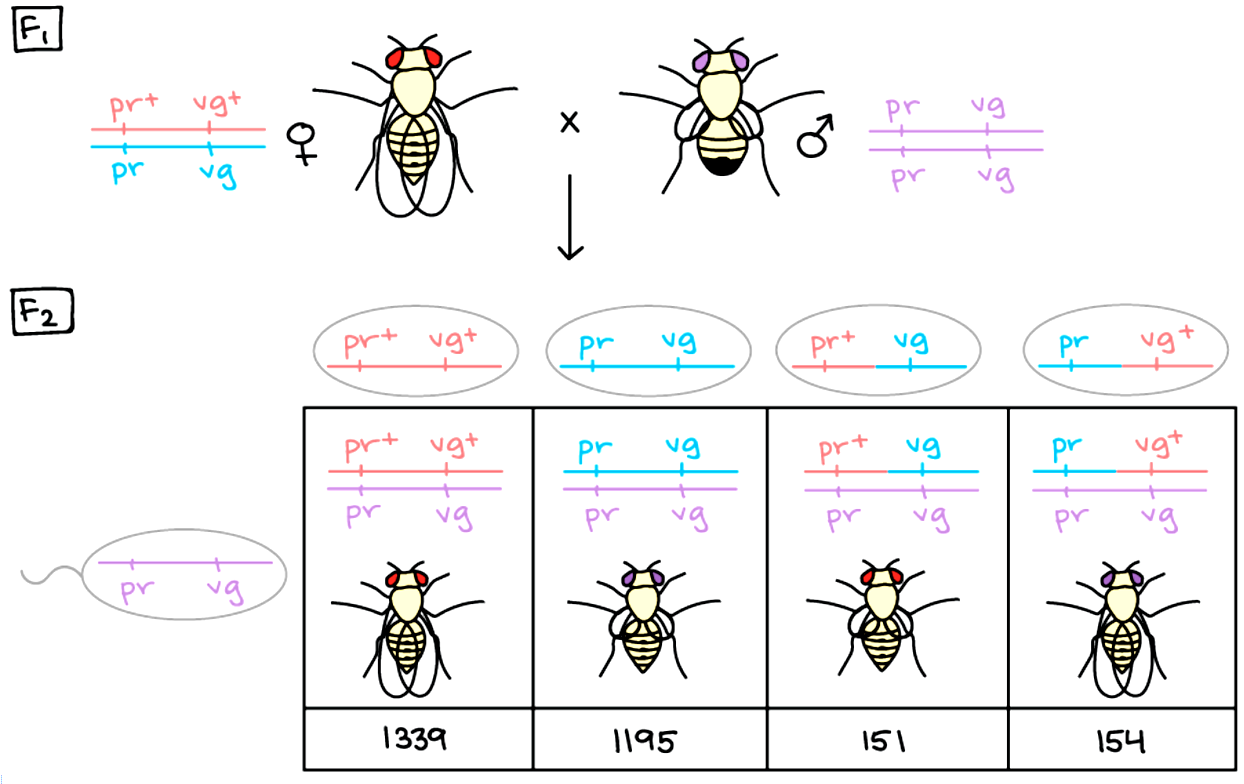 F₁
pr⁺ vg⁺
pr vg
♀
x
♂
pr vg
pr vg
F₂
pr⁺ vg⁺
pr vg
pr⁺ vg
pr vg⁺
pr⁺ vg⁺
pr vg
pr⁺ vg
pr vg⁺
pr vg
pr vg
pr vg
pr vg
pr vg
1339
1195
151
154